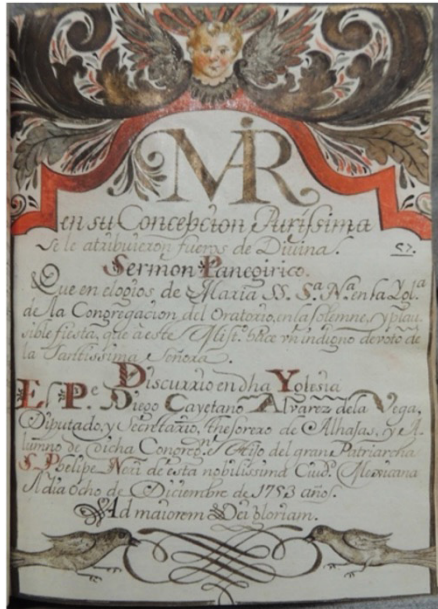 MAR
en su Concepcion Purissima
se le atribuieron fueros de Divina.
57.
Sermon Panegirico.
Que en elogios de Maria SS. Sª. Nª. en la Yglª
de la Congregacion del Oratorio, en la solemne, y plau
sible fiesta, que à este Mistº. hice vn indigno devoto de
la Santissima Señora.
Discurrio en dha Yglesia
El Pe Diego Cayetano Alvarez dela Vega,
Diputado, y Secretario, thesorero de Alhajas, y A-
lumno de dicha Congregn. e Hijo del gran Patriarcha
S. Phelipe Neri de esta nobilissima Ciud. Mexicana
A dia ocho de Diciembre de 1753 años.
Ad maiorem Dei gloriam.